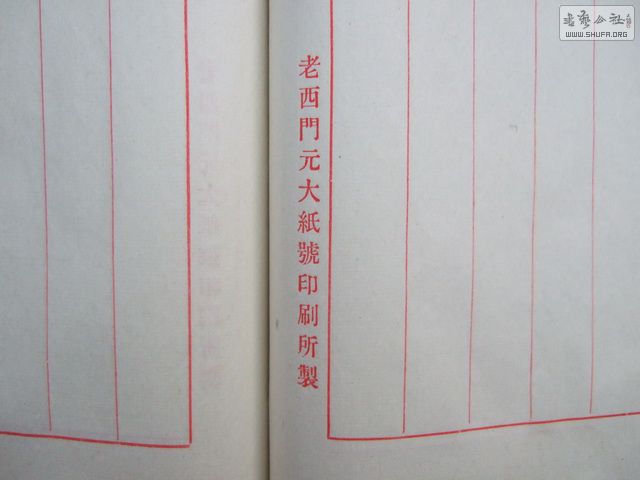 老西門元大紙號印刷所製
书艺公社
WWW.SHUFA.ORG